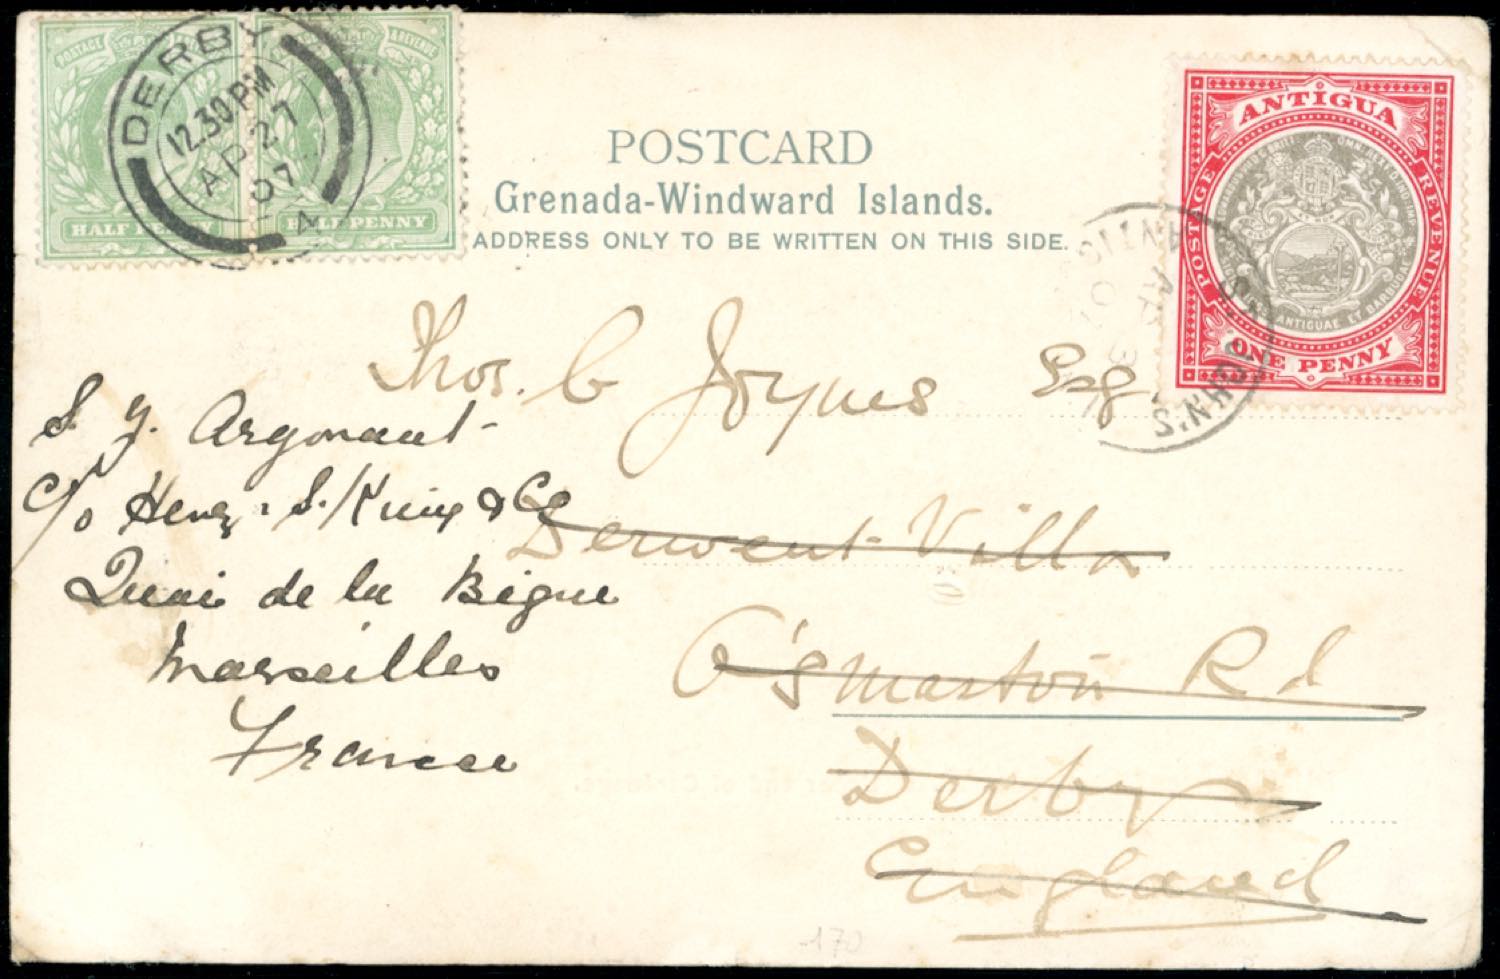 POSTAGE & REVENUE
HALF PENNY
HALF PENNY
DERBY
12.30 PM
AP 27
07
4
POSTCARD
Grenada-Windward Islands.
ADDRESS ONLY TO BE WRITTEN ON THIS SIDE.
ANTIGUA
POSTAGE
REVENUE
ONE PENNY
ST. JOHN'S
ANTIGUA
AP
07
Thos. C Joynes Esq.
Derwent Villa
Osmaston Rd
Derby
England
S. Y. Argonaut
c/o Henry S. King & Co
Quai de la Bigue
Marseilles
France
170